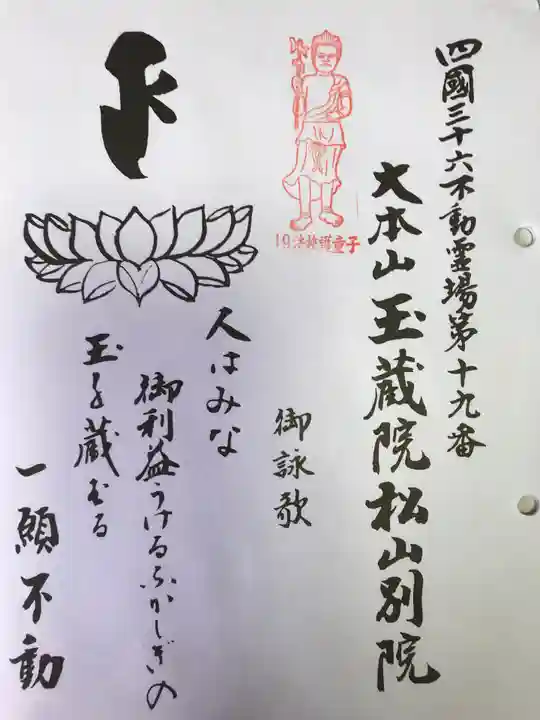 四國三十六不動霊場第十九番
大本山玉蔵院松山別院
19 法護童子
御詠歌
人はみな
御利益うけるふかしぎの
玉を蔵する
一願不動